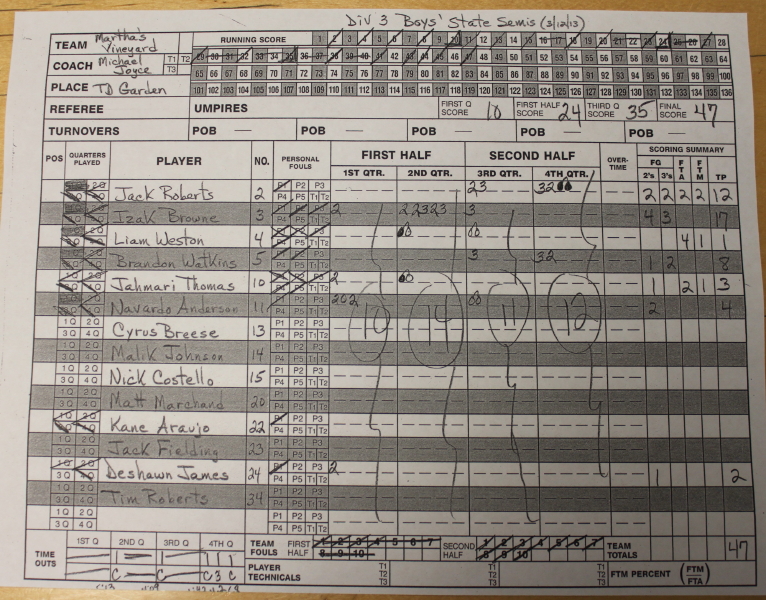 Div 3 Boys' State Semis (3/12/13)
TEAM Martha's Vineyard RUNNING SCORE 1 2 3 4 5 6 7 8 9 10 11 12 13 14 15 16 17 18 19 20 21 22 23 24 25 26 27 28
COACH Michael Joyce T1 T2 T3 29 30 31 32 33 34 35 36 37 38 39 40 41 42 43 44 45 46 47 48 49 50 51 52 53 54 55 56 57 58 59 60 61 62 63 64
65 66 67 68 69 70 71 72 73 74 75 76 77 78 79 80 81 82 83 84 85 86 87 88 89 90 91 92 93 94 95 96 97 98 99 100
PLACE TD Garden 101 102 103 104 105 106 107 108 109 110 111 112 113 114 115 116 117 118 119 120 121 122 123 124 125 126 127 128 129 130 131 132 133 134 135 136
REFEREE UMPIRES FIRST Q SCORE 10 FIRST HALF SCORE 24 THIRD Q SCORE 35 FINAL SCORE 47
TURNOVERS POB — POB — POB — POB — POB —
POS QUARTERS PLAYED PLAYER NO. PERSONAL FOULS FIRST HALF SECOND HALF OVER-TIME SCORING SUMMARY
1ST QTR. 2ND QTR. 3RD QTR. 4TH QTR. FG 2's 3's FTA FTM TP
Jack Roberts 2 P1 P2 P3 P4 P5 T1 T2 23 32 2 2 2 2 12
Izak Browne 3 2 2 2323 3 4 3 17
Liam Weston 4 4 1 1
Brandon Watkins 5 3 32 1 2 8
Jahmari Thomas 10 2 1 2 1 3
Navardo Anderson 11 202 2 4
1Q 2Q 3Q 4Q Cyrus Breese 13 P1 P2 P3 P4 P5 T1 T2 10 14 11 12
1Q 2Q 3Q 4Q Malik Johnson 14 P1 P2 P3 P4 P5 T1 T2
1Q 2Q 3Q 4Q Nick Costello 15 P1 P2 P3 P4 P5 T1 T2
1Q 2Q 3Q 4Q Matt Marchand 20 P1 P2 P3 P4 P5 T1 T2
Kane Araujo 22 P1 P2 P3 P4 P5 T1 T2
Jack Fielding 23 P1 P2 P3 P4 P5 T1 T2
Deshawn James 24 P1 P2 P3 P4 P5 T1 T2 2 1 2
1Q 2Q 3Q 4Q Tim Roberts 34 P1 P2 P3 P4 P5 T1 T2
1Q 2Q 3Q 4Q P1 P2 P3 P4 P5 T1 T2
TIME OUTS 1ST Q 2ND Q 3RD Q 4TH Q TEAM FOULS FIRST HALF 1 2 3 4 5 6 7 8 9 10 SECOND HALF 1 2 3 4 5 6 7 8 9 10 TEAM TOTALS 47
PLAYER TECHNICALS T1 T2 T3 T1 T2 T3 T1 T2 T3 FTM PERCENT (FTM FTA)